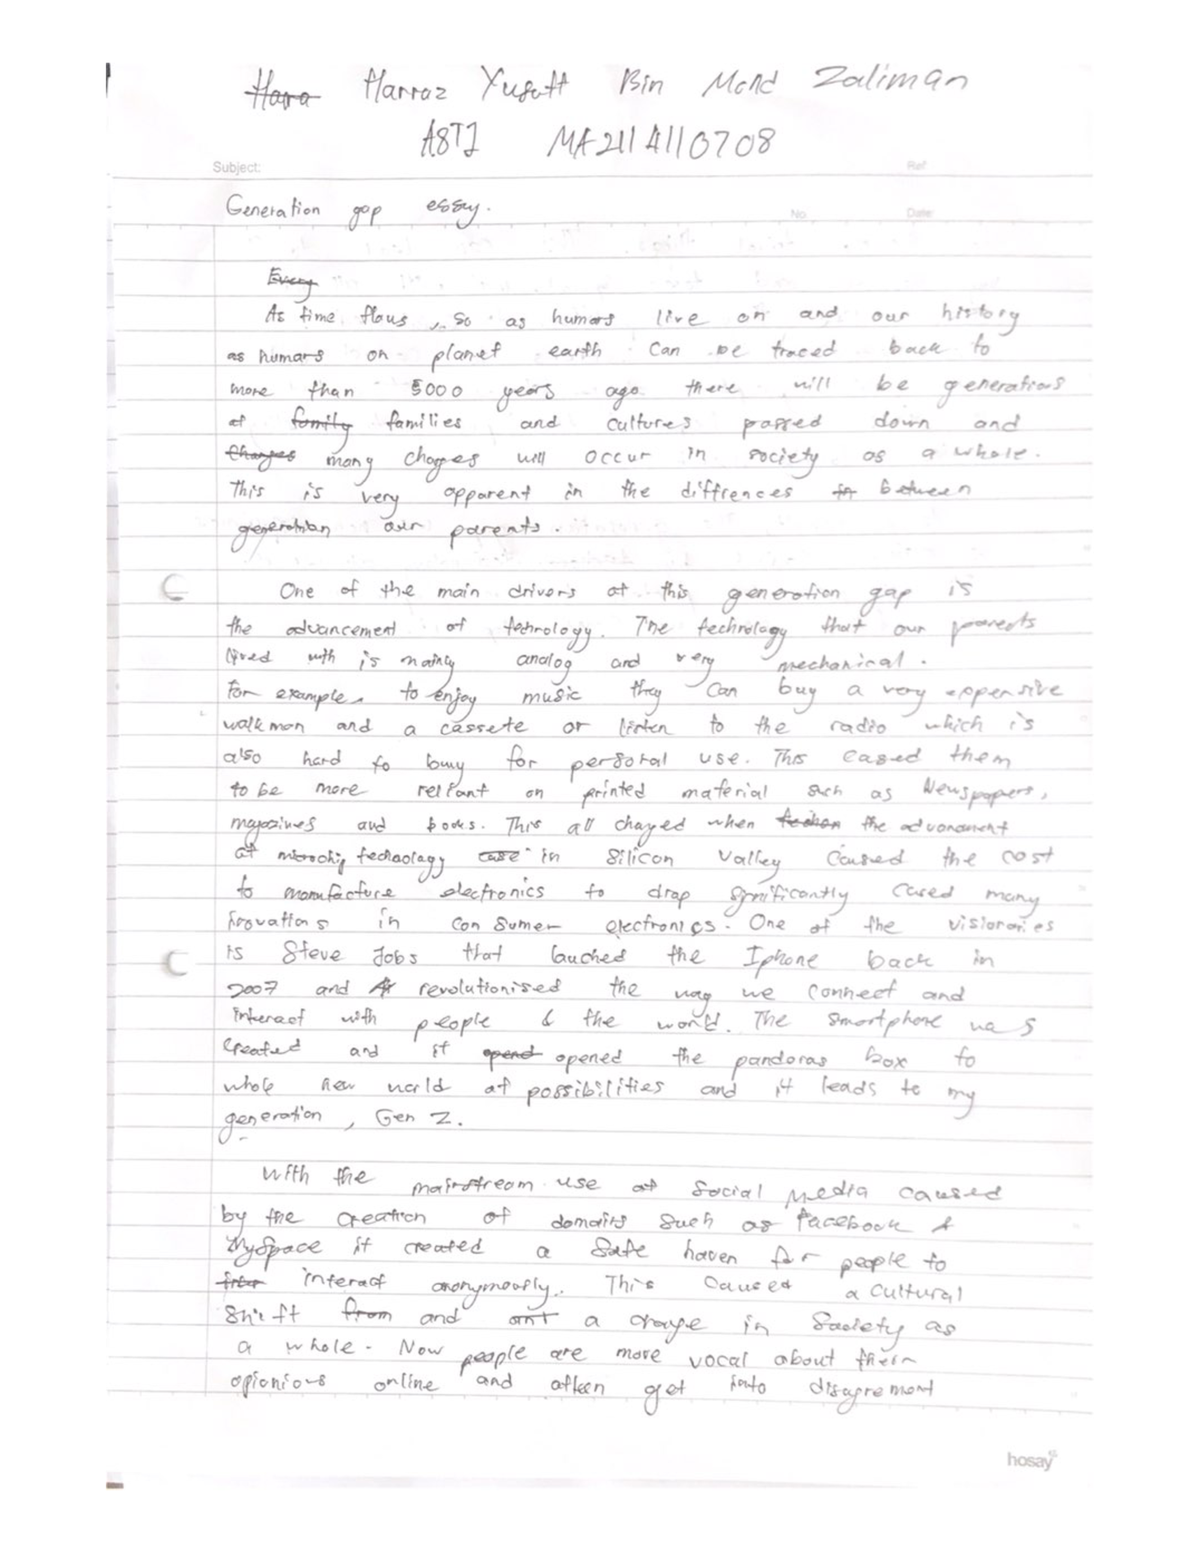 Hara Harraz Yusoff Bin Mohd Zaliman
A8TJ MA2114110708
Subject: Ref:
Generation gap essay.
No. Date:
Every
As time flows, so as humans live on and our history
as humans on planet earth can be traced back to
more than 5000 years ago there will be generations
of family families and cultures passed down and
Changes many changes will occur in society as a whole.
This is very apparent in the diffrences in between
generation our parents.
One of the main drivers of this generation gap is
the advancement of technology. The technology that our parents
lived with is mainly analog and very mechanical.
For example, to enjoy music they can buy a very expensive
walkman and a cassete or listen to the radio which is
also hard to buy for personal use. This caused them
to be more reliant on printed material such as Newspapers,
magazines and books. This all changed when the advancment
of microchip technology case in Silicon Valley caused the cost
to manufacture electronics to drop significantly cased many
inovations in consumer electronics. One of the visionaries
is Steve Jobs that lauched the Iphone back in
2007 and revolutionised the way we connect and
interact with people & the world. The smartphone was
created and it opend opened the pandoras box to
whole new world of possibilities and it leads to my
generation, Gen Z.
With the mainstream use of social media caused
by the creation of domains such as Facebook &
MySpace it created a safe haven for people to
interact anonymously. This caused a cultural
shift from and a change in society as
a whole. Now people are more vocal about their
opionions online and often get into disagrement
hosay